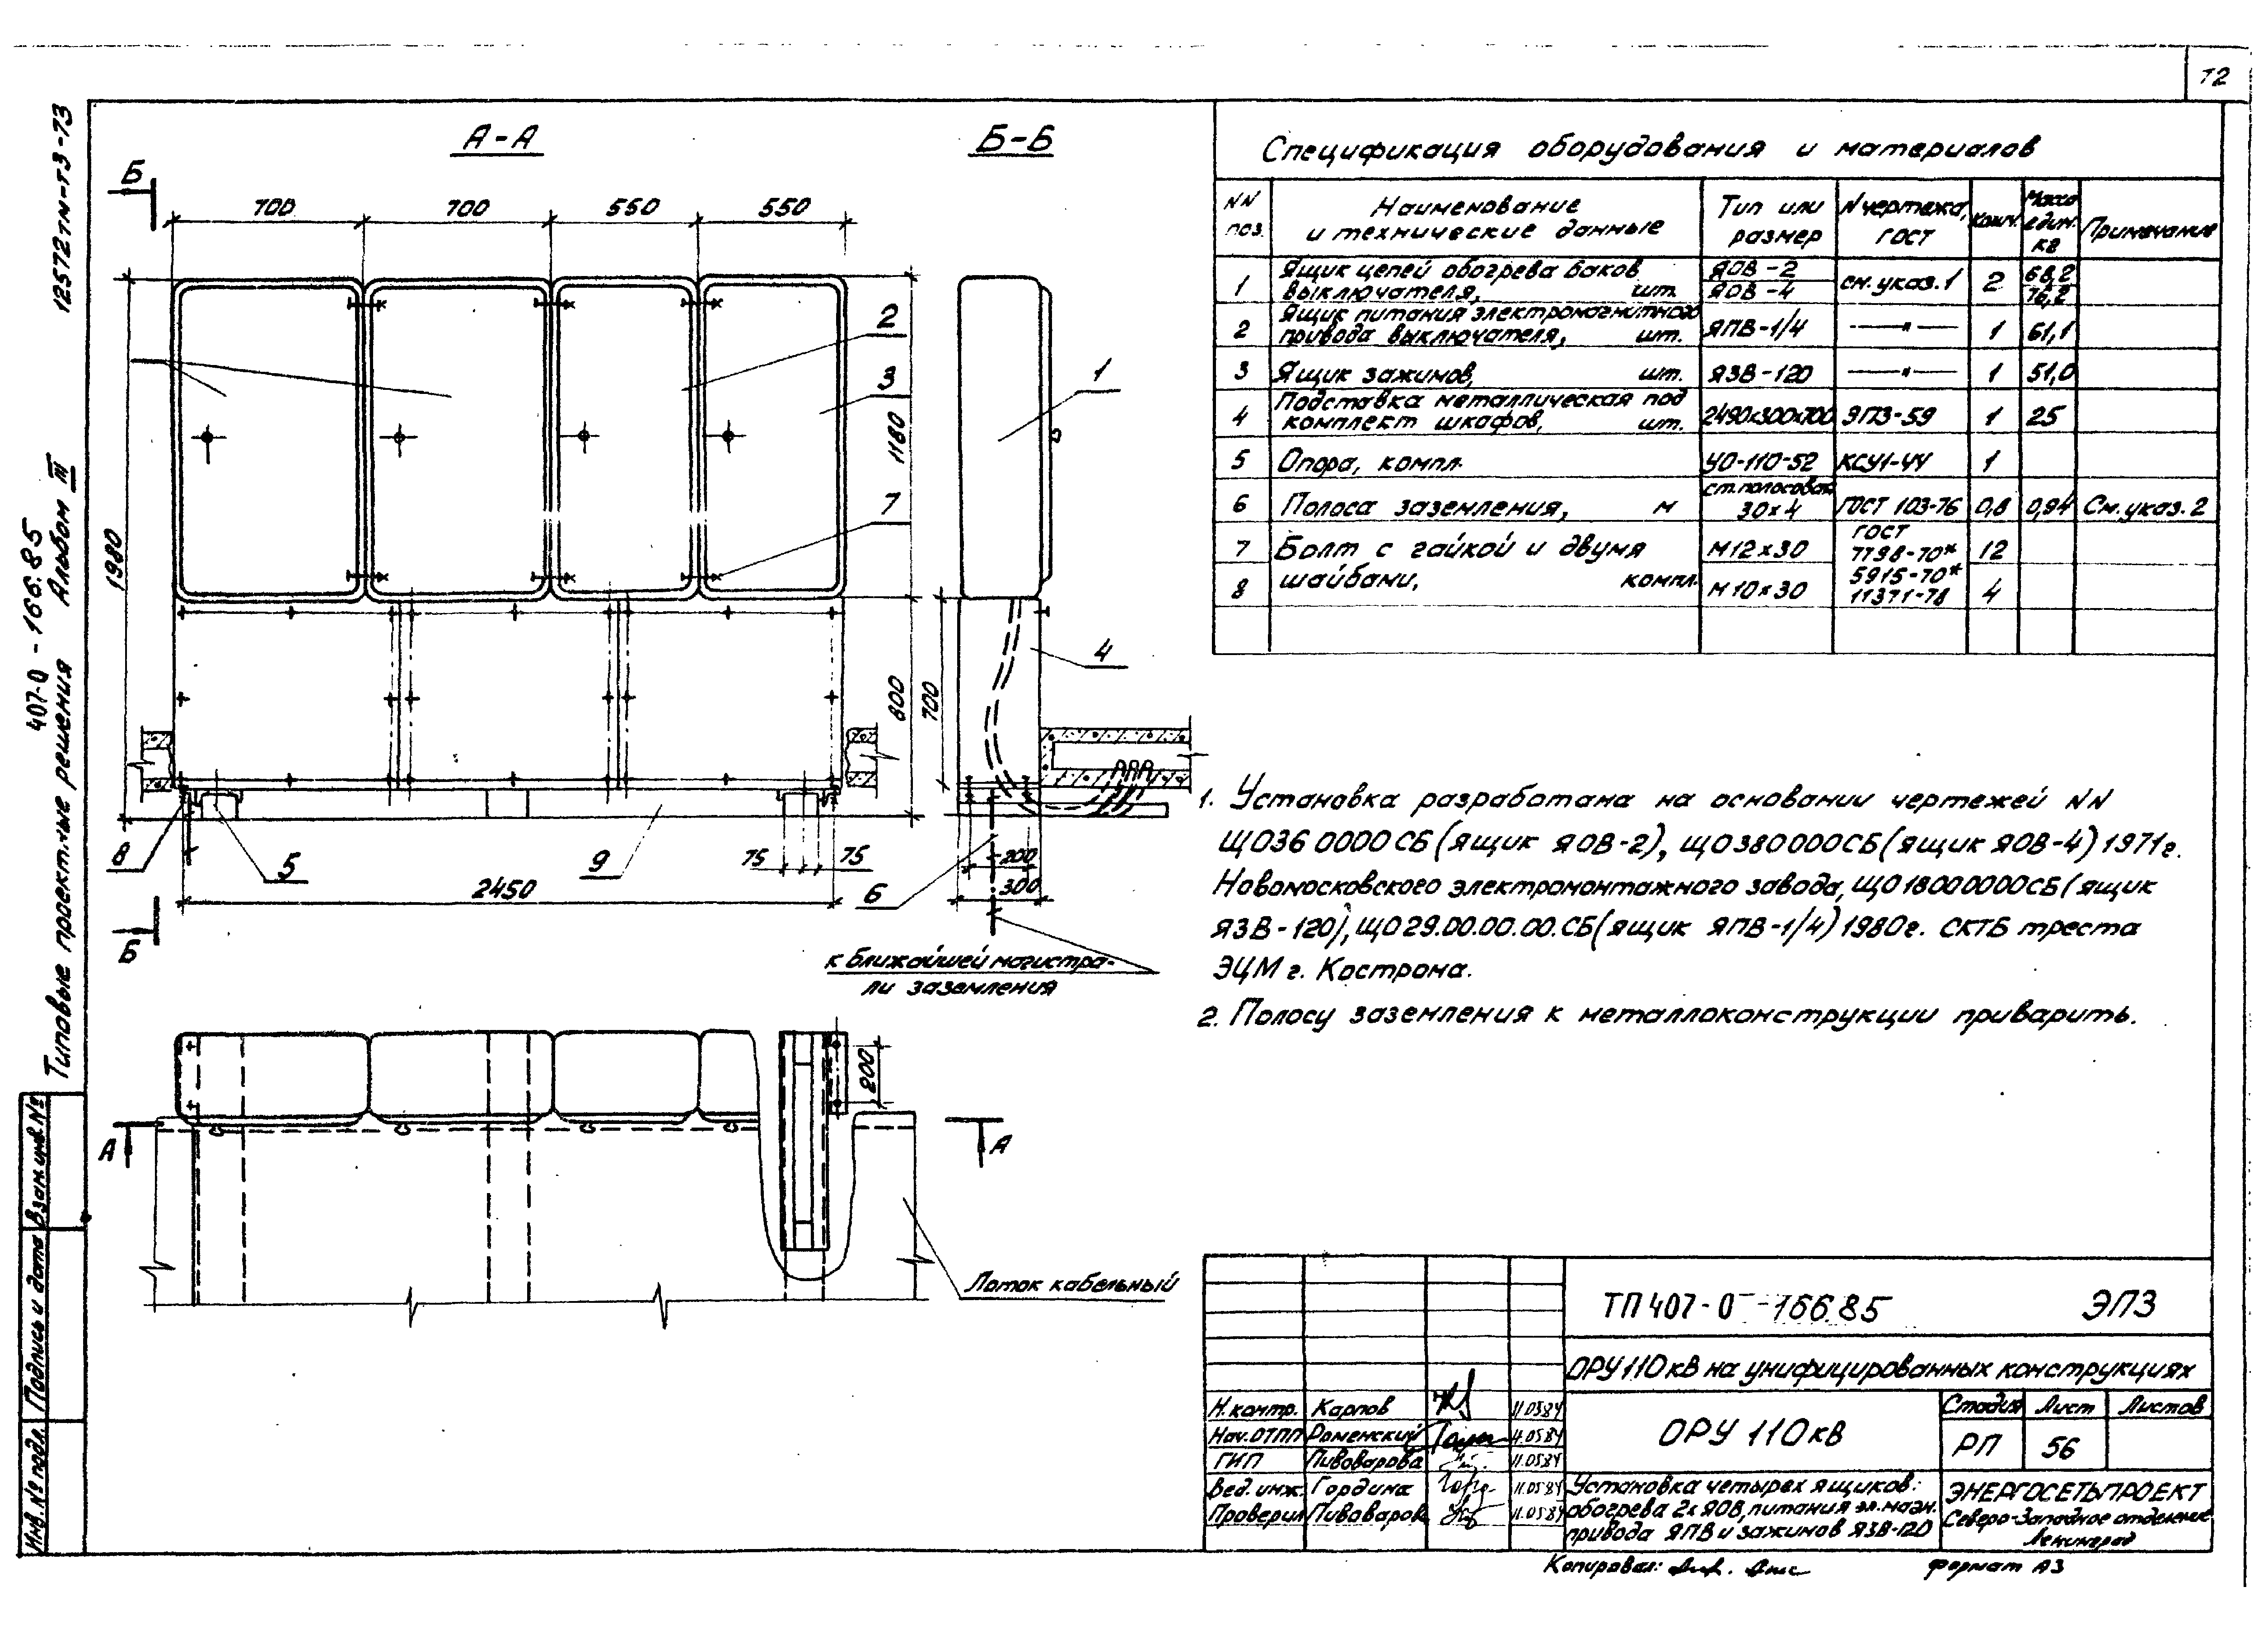 72
12572тм-т3-73
407-0-166.85
Типовые проектные решения Альбом III
Взам.инв.№
Подпись и дата
Инв.№ подл.
А-А
Б-Б
Б
700 700 550 550
2
3
1180
7
1980
800
8
5
9
75 75
2450
Б
1
4
700
6
200
300
к ближайшей магистра-
ли заземления
200
А
А
Лоток кабельный
Спецификация оборудования и материалов
NN поз.
Наименование и технические данные
Тип или размер
N чертежа, ГОСТ
Колич.
Масса един. кг
Примечание
1 Ящик цепей обогрева баков выключателя, шт. ЯОВ-2 ЯОВ-4 см. указ.1 2 68,2 76,2
2 Ящик питания электромагнитного привода выключателя, шт. ЯПВ-1/4 —"— 1 61,1
3 Ящик зажимов, шт. ЯЗВ-120 —"— 1 51,0
4 Подставка металлическая под комплект шкафов, шт. 2490х300х700 ЭПЗ-59 1 25
5 Опора, компл. УО-110-52 КСУ1-УУ 1
6 Полоса заземления, м ст.полосовая 30х4 ГОСТ 103-76 0,8 0,94 См. указ. 2
7 Болт с гайкой и двумя М12х30 ГОСТ 7798-70* 12
8 шайбами, компл. М10х30 5915-70* 11371-78 4
1. Установка разработана на основании чертежей NN
ЩО36 0000СБ (ящик ЯОВ-2), ЩО380000СБ (ящик ЯОВ-4) 1971г.
Новомосковского электромонтажного завода, ЩО18000000СБ (ящик
ЯЗВ-120), ЩО29.00.00.00.СБ (ящик ЯПВ-1/4) 1980г. СКТБ треста
ЭЦМ г. Кострома.
2. Полосу заземления к металлоконструкции приварить.
ТП 407-0-166.85 ЭПЗ
ОРУ 110кВ на унифицированных конструкциях
Н.контр. Карпов 11.0584
Нач.ОТПП Роменский 11.0584
ГИП Пивоварова 11.0584
Вед.инж. Гордина 11.0584
Проверил Пивоваров 11.0584
ОРУ 110кВ
Стадия Лист Листов
РП 56
Установка четырех ящиков:
обогрева 2хЯОВ, питания эл.магн.
привода ЯПВ и зажимов ЯЗВ-120
ЭНЕРГОСЕТЬПРОЕКТ
Северо-Западное отделение
Ленинград
Копировал:
формат А3